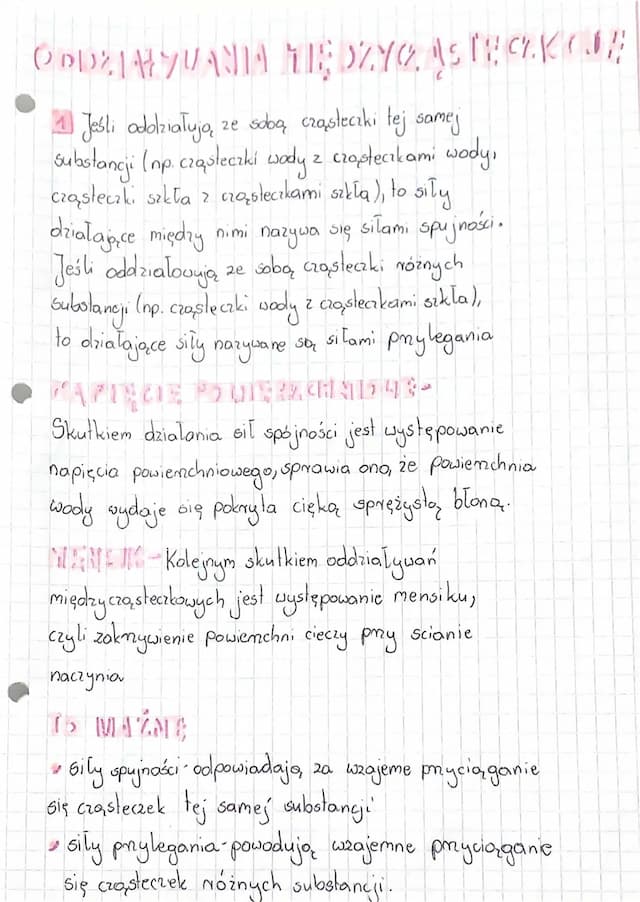 ODDZIAŁYWANIA MIĘDZYCZĄSTECZKOWE
1 Jeśli oddziałują ze sobą cząsteczki tej samej
substancji (np. cząsteczki wody z cząsteczkami wody,
cząsteczki szkła z cząsteczkami szkła), to siły
działające między nimi nazywa się siłami spujności.
Jeśli oddziałowują ze sobą cząsteczki różnych
substancji (np. cząsteczki wody z cząsteczkami szkła),
to działające siły nazywane są siłami przylegania
NAPIĘCIE POWIERZCHNIOWE-
Skutkiem działania sił spójności jest występowanie
napięcia powierzchniowego, sprawia ono, że powierzchnia
wody wydaje się pokryta cięką sprężystą błoną.
MENISK - Kolejnym skutkiem oddziaływań
międzycząsteczkowych jest występowanie mensiku,
czyli zakrzywienie powierzchni cieczy przy scianie
naczynia
TO WAŻNE
siły spujności - odpowiadają za wzajeme przyciąganie
się cząsteczek tej samej substancji
siły przylegania - powodują wzajemne przyciąganie
się cząsteczek różnych substancji.